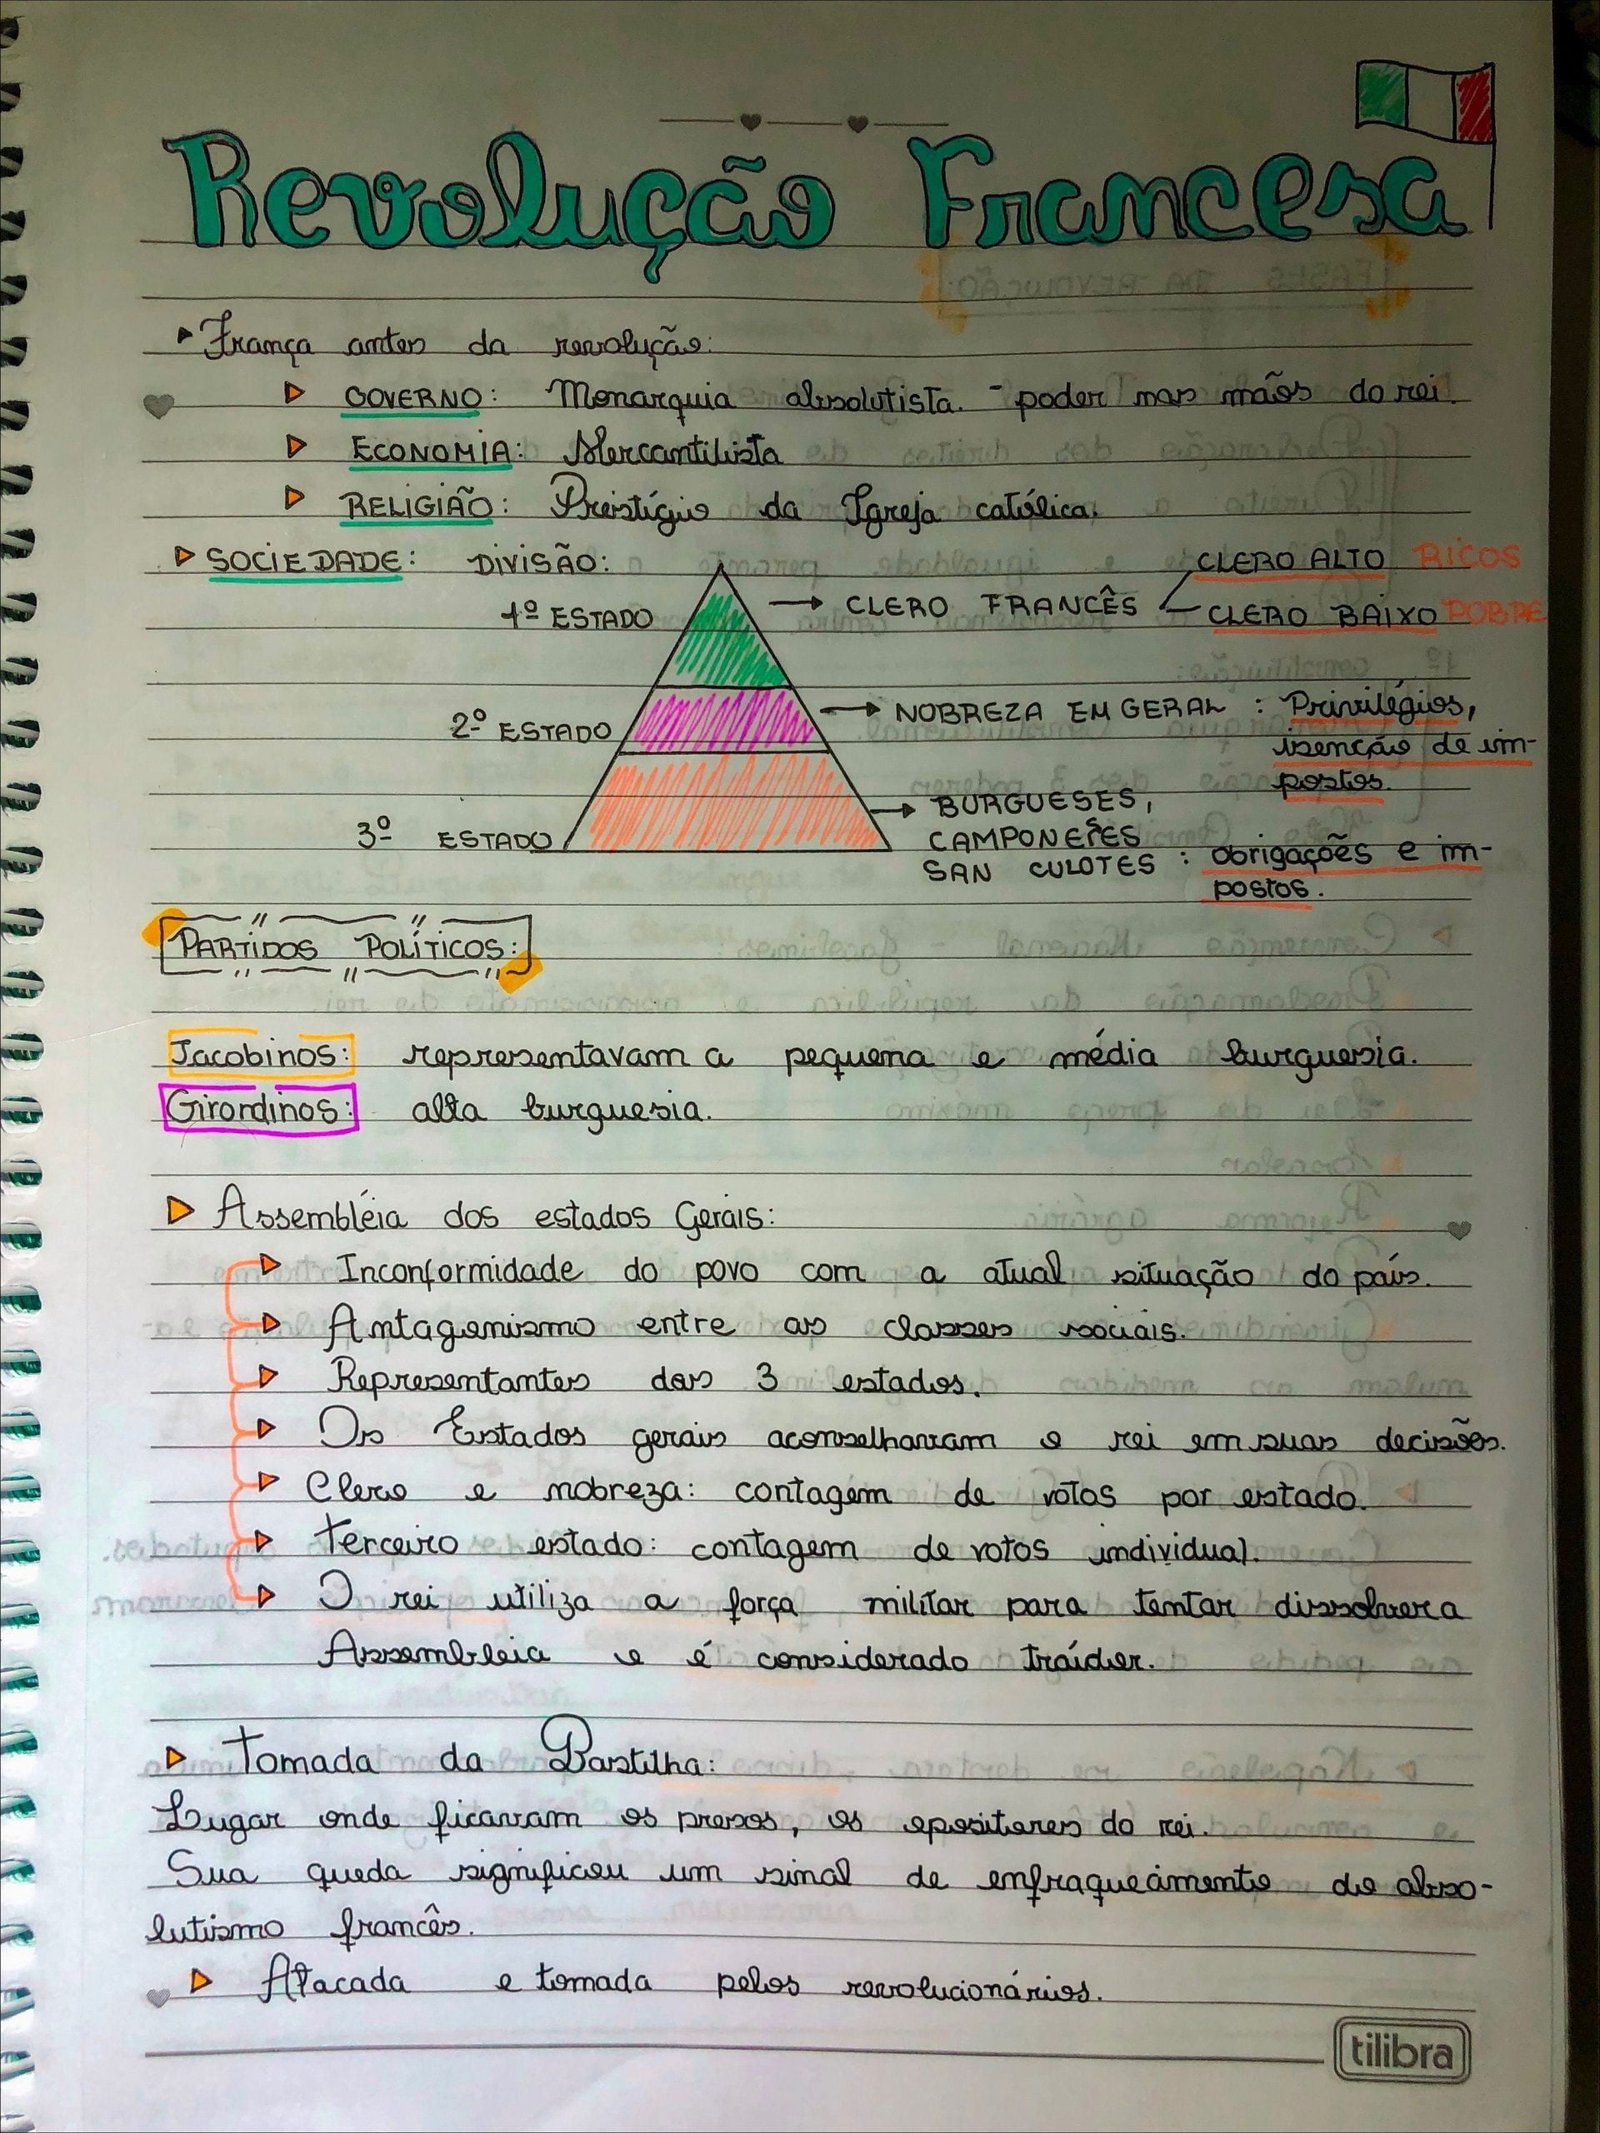 Revolução Francesa
França antes da revolução:
GOVERNO: Monarquia absolutista. - poder nas mãos do rei.
ECONOMIA: Mercantilista
RELIGIÃO: Prestígio da Igreja católica.
SOCIEDADE: DIVISÃO:
CLERO ALTO RICOS
1º ESTADO → CLERO FRANCÊS
CLERO BAIXO POBRE
2º ESTADO → NOBREZA EM GERAL : Privilégios,
isenção de im-
postos.
3º ESTADO → BURGUESES,
CAMPONESES
SAN CULOTES : obrigações e im-
postos.
PARTIDOS POLÍTICOS:
Jacobinos: representavam a pequena e média burguesia.
Girondinos: alta burguesia.
Assembléia dos estados Gerais:
Inconformidade do povo com a atual situação do país.
Antagonismo entre as classes sociais.
Representantes dos 3 estados.
Os Estados gerais aconselhavam o rei em suas decisões.
Clero e nobreza: contagem de votos por estado.
Terceiro estado: contagem de votos individual.
O rei utiliza a força militar para tentar dissolver a
Assembleia e é considerado traídor.
Tomada da Bastilha:
Lugar onde ficavam os presos, os opositores do rei.
Sua queda significou um sinal de enfraquecimento do abso-
lutismo francês.
Atacada e tomada pelos revolucionários.
tilibra